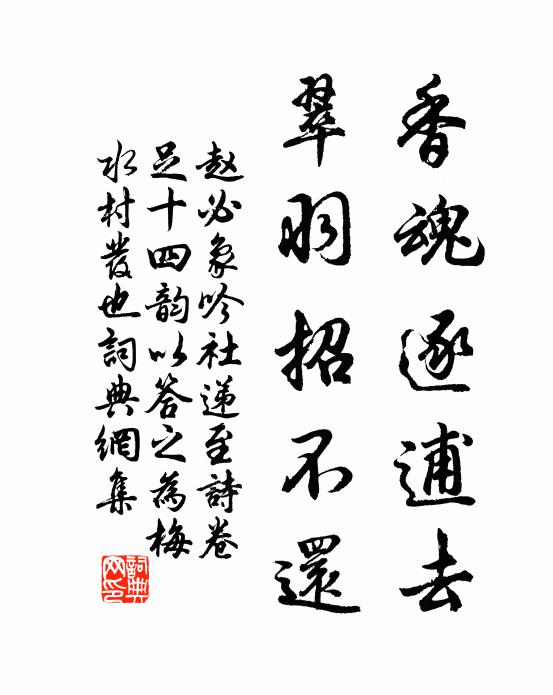 香魂逐逋去
翠羽招不還
赵必象吟社递至詩卷
足十四韵以答之為梅
水村發也詞典網集
詞典网印